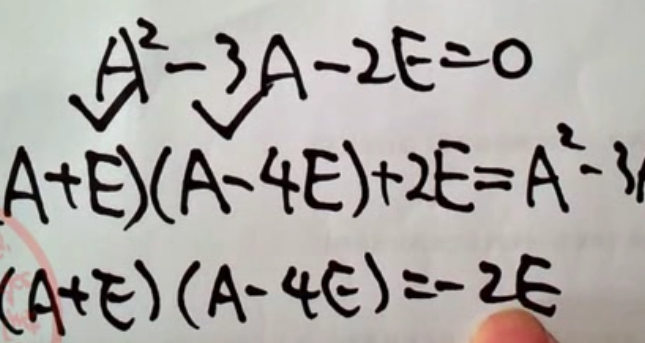 A²-3A-2E=0
A+E)(A-4E)+2E=A²-3A
(A+E)(A-4E)=-2E